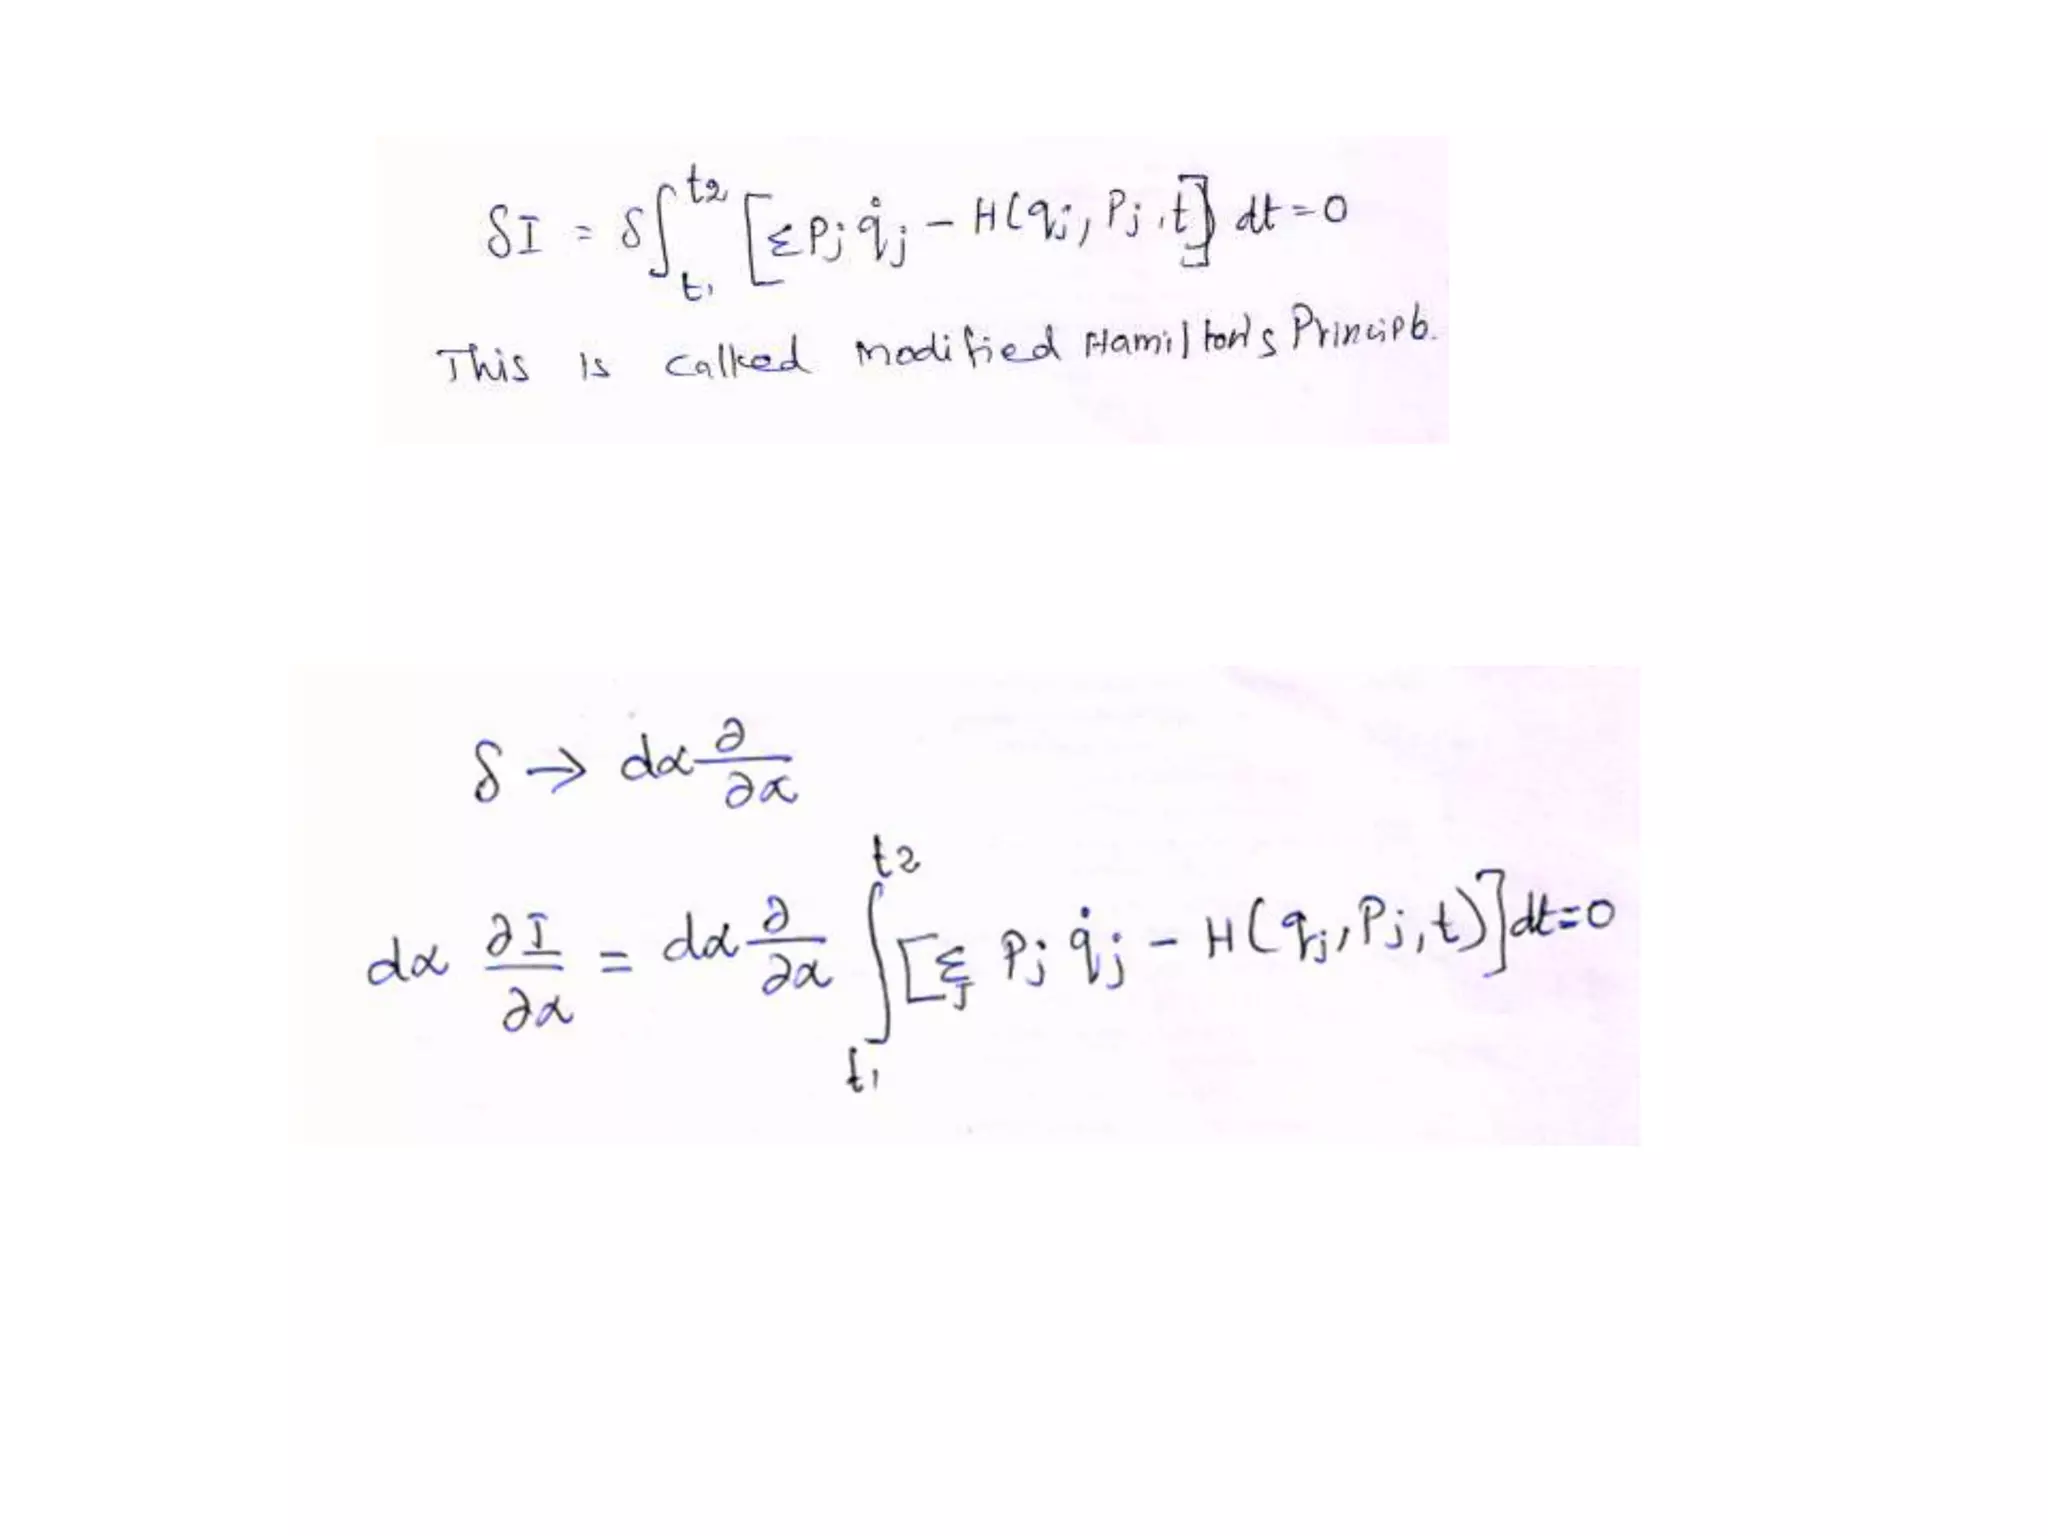 δI = δ∫_{t₁}^{t₂} [Σ Pj q̇j − H(qj, Pj, t)] dt = 0
This is called modified Hamilton's Principle.
δ → dα ∂/∂α
dα ∂I/∂α = dα ∂/∂α ∫_{t₁}^{t₂} [Σ_j Pj q̇j − H(qj, Pj, t)] dt = 0